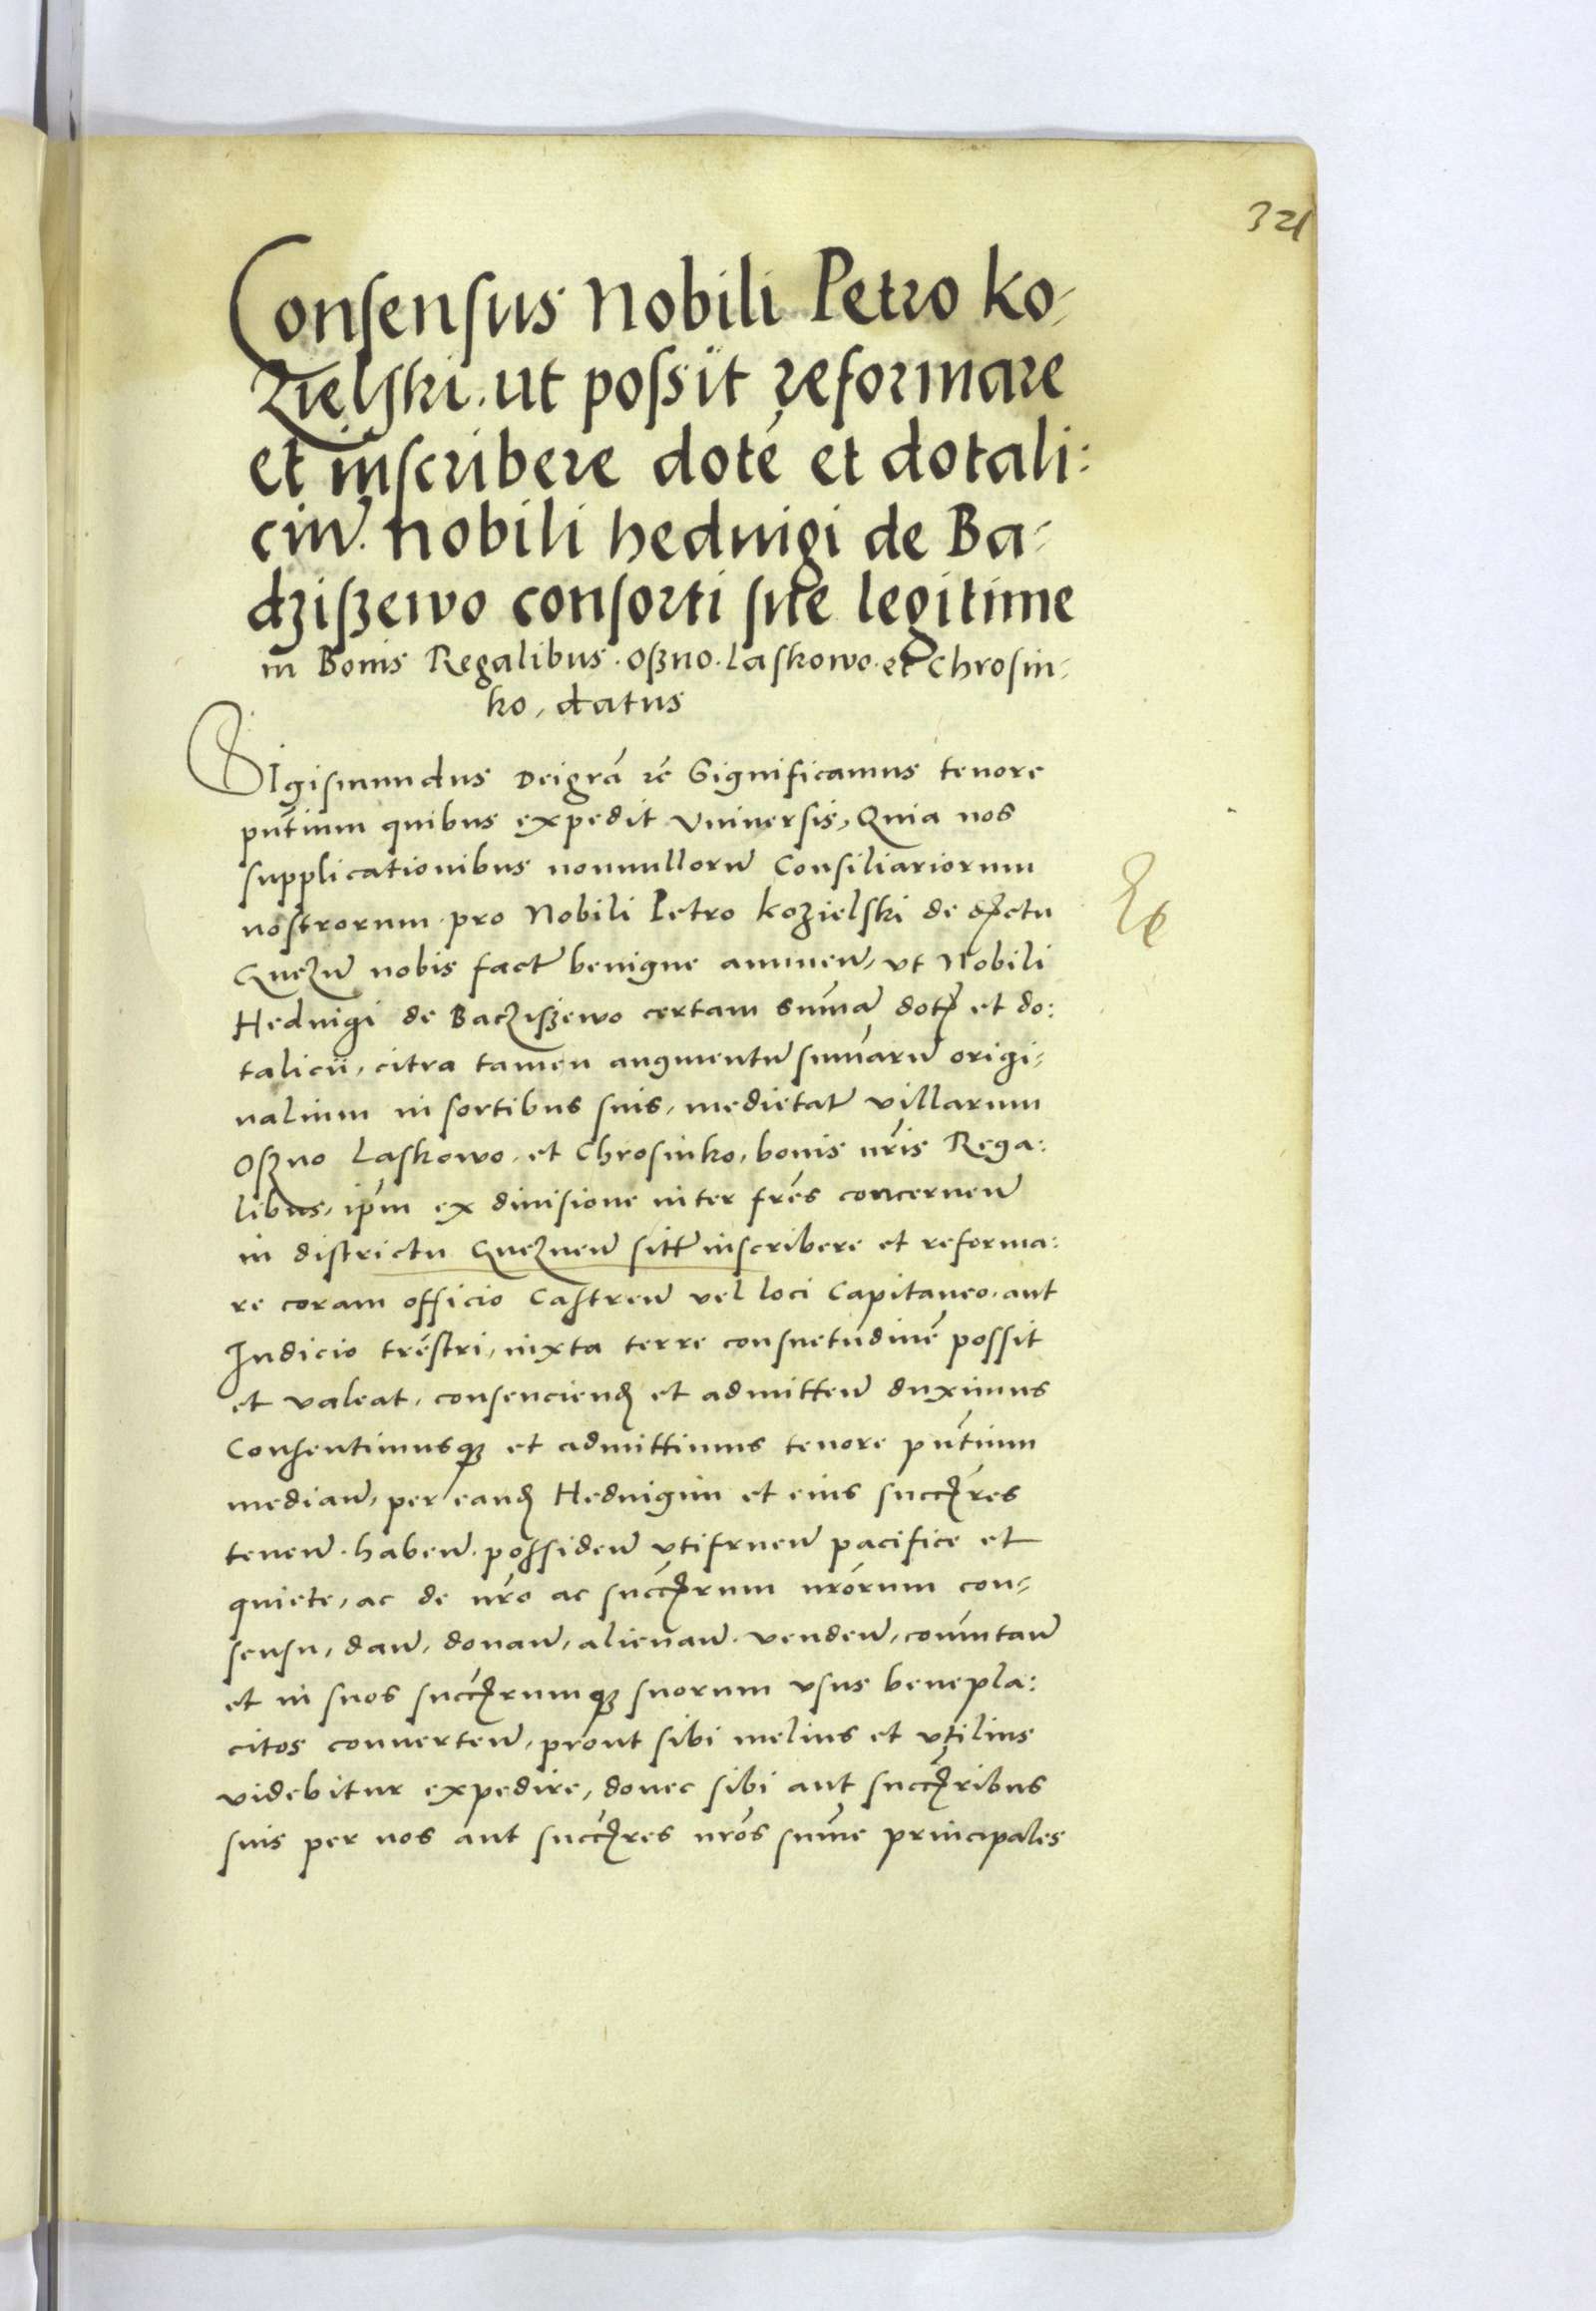 321
Consensus Nobili Petro ko-
zielski. ut possit reformare
et inscribere dotē et dotali:
ciū. nobili heduigi de Ba-
dziszewo consorti sue legitime
in Bonis Regalibus. Oszno. Laskowo. et Chrosin-
ko, datus
SIgismundus Dei grā rē Significamus tenore
pñtium quibus expedit Vniuersis, Quia nos
supplicationibus nonnullorū Consiliariorum
nostrorum. pro Nobili Petro kozielski de
Gnezn̄ nobis fact̄ benigne annuen̄, vt Nobili
Heduigi de Baczischewo certam sum̄ā dot̄ et do:
talicii, citra tamen augmentū sum̄arū origi-
nalium in sortibus suis, medietat̄ villarum
Oszno Laskowo. et Chrosinko, bonis nr̄is Rega:
libus, ip̄m ex diuisione inter fr̄es concernen̄
in districtu Gneznen̄ sitt̄ inscribere et reforma:
re coram officio Castren̄ vel loci Capitaneo. aut
Iudicio tr̄estri, iuxta terre consuetudinē possit
et valeat, consenciend̄ et admitten̄ duximus
Consentimusqȝ et admittimus tenore pñtium
median̄, per eand̄ Heduigim et eius succ̄res
tenen̄. haben̄. possiden̄ vtifruen̄ pacifice et
quiete, ac de nr̄o ac succ̄rum nr̄orum con-
sensu, dan̄, donan̄, alienan̄. venden̄, com̄utan̄
et in suos succ̄rumqȝ suorum vsus benepla:
citos conuerten̄, prout sibi melius et vtilius
videbitur expedire, donec sibi aut succ̄ribus
suis per nos aut succ̄res nr̄os sum̄e principales